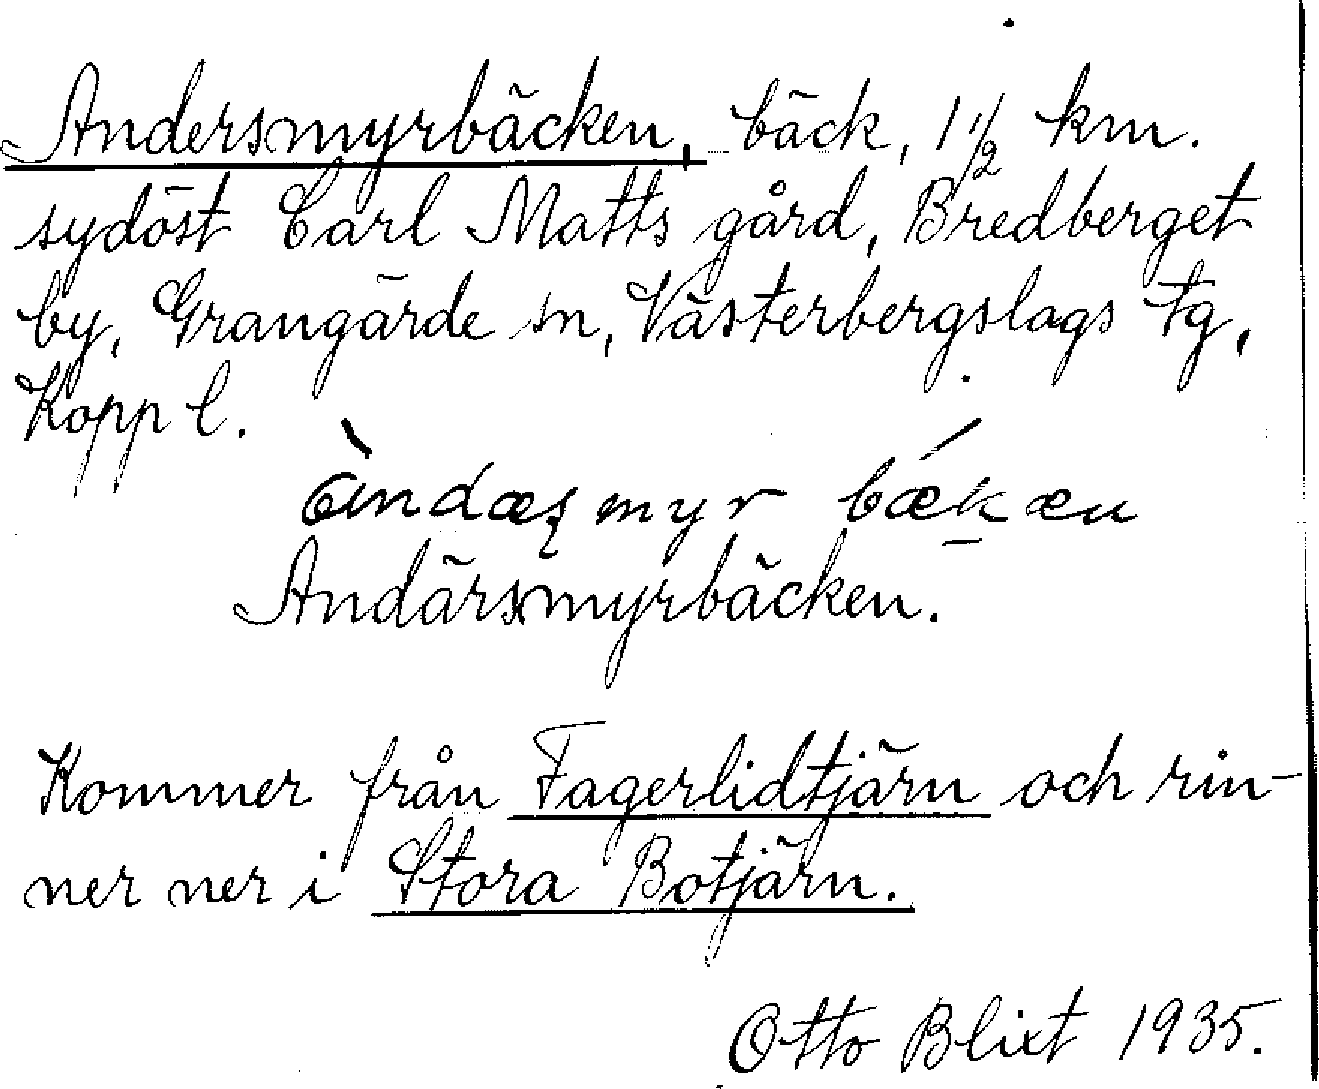 Andersmyrbäcken, bäck, 1 1/2 km.
sydöst Carl Matts gård, Bredberget
by, Grangärde sn, Västerbergslags tg,
Kopp l.
myr bækæn
Andärsmyrbäcken.
Kommer från Fagerlidtjärn och rin-
ner ner i Stora Botjärn.
Otto Blixt 1935.